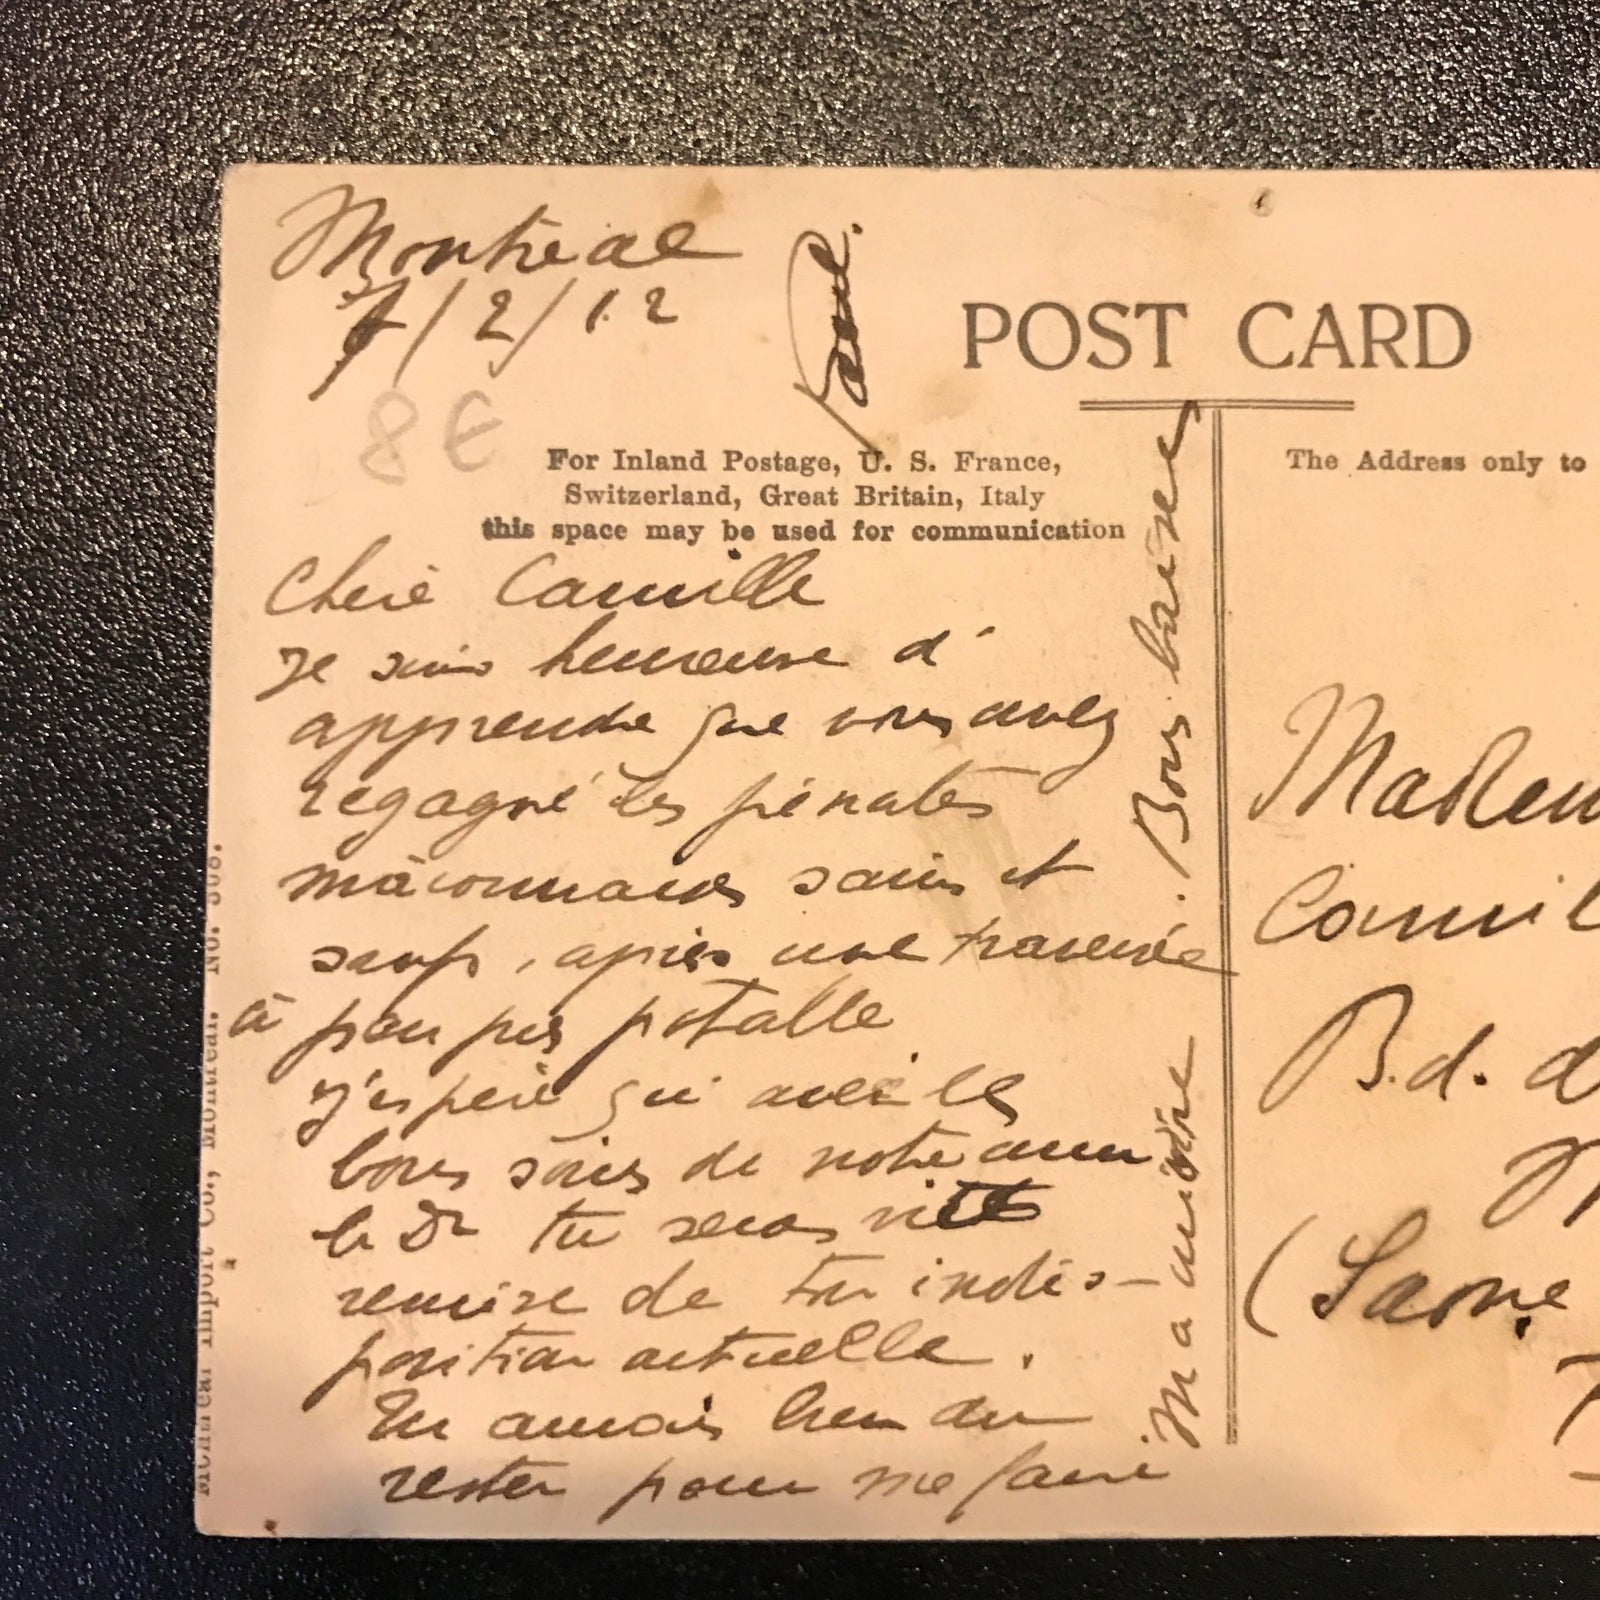 Montréal
7/2/12
8€
POST CARD
For Inland Postage, U. S. France,
Switzerland, Great Britain, Italy
this space may be used for communication
The Address only to
Chère Camille
Je suis heureuse d'
apprendre que vous avez
regagné les pénates
mâconnaises sains et
saufs, après une traversée
à peu près potable
J'espère qu'avec les
bons soins de notre ami
le Dr tu seras vite
remise de ton indis-
position actuelle.
Tu aurais bien du
rester pour me faire
Ma manière. Bons baisers
Montreal Import Co., Montreal. No.
Camil
B.d. d
(Saone